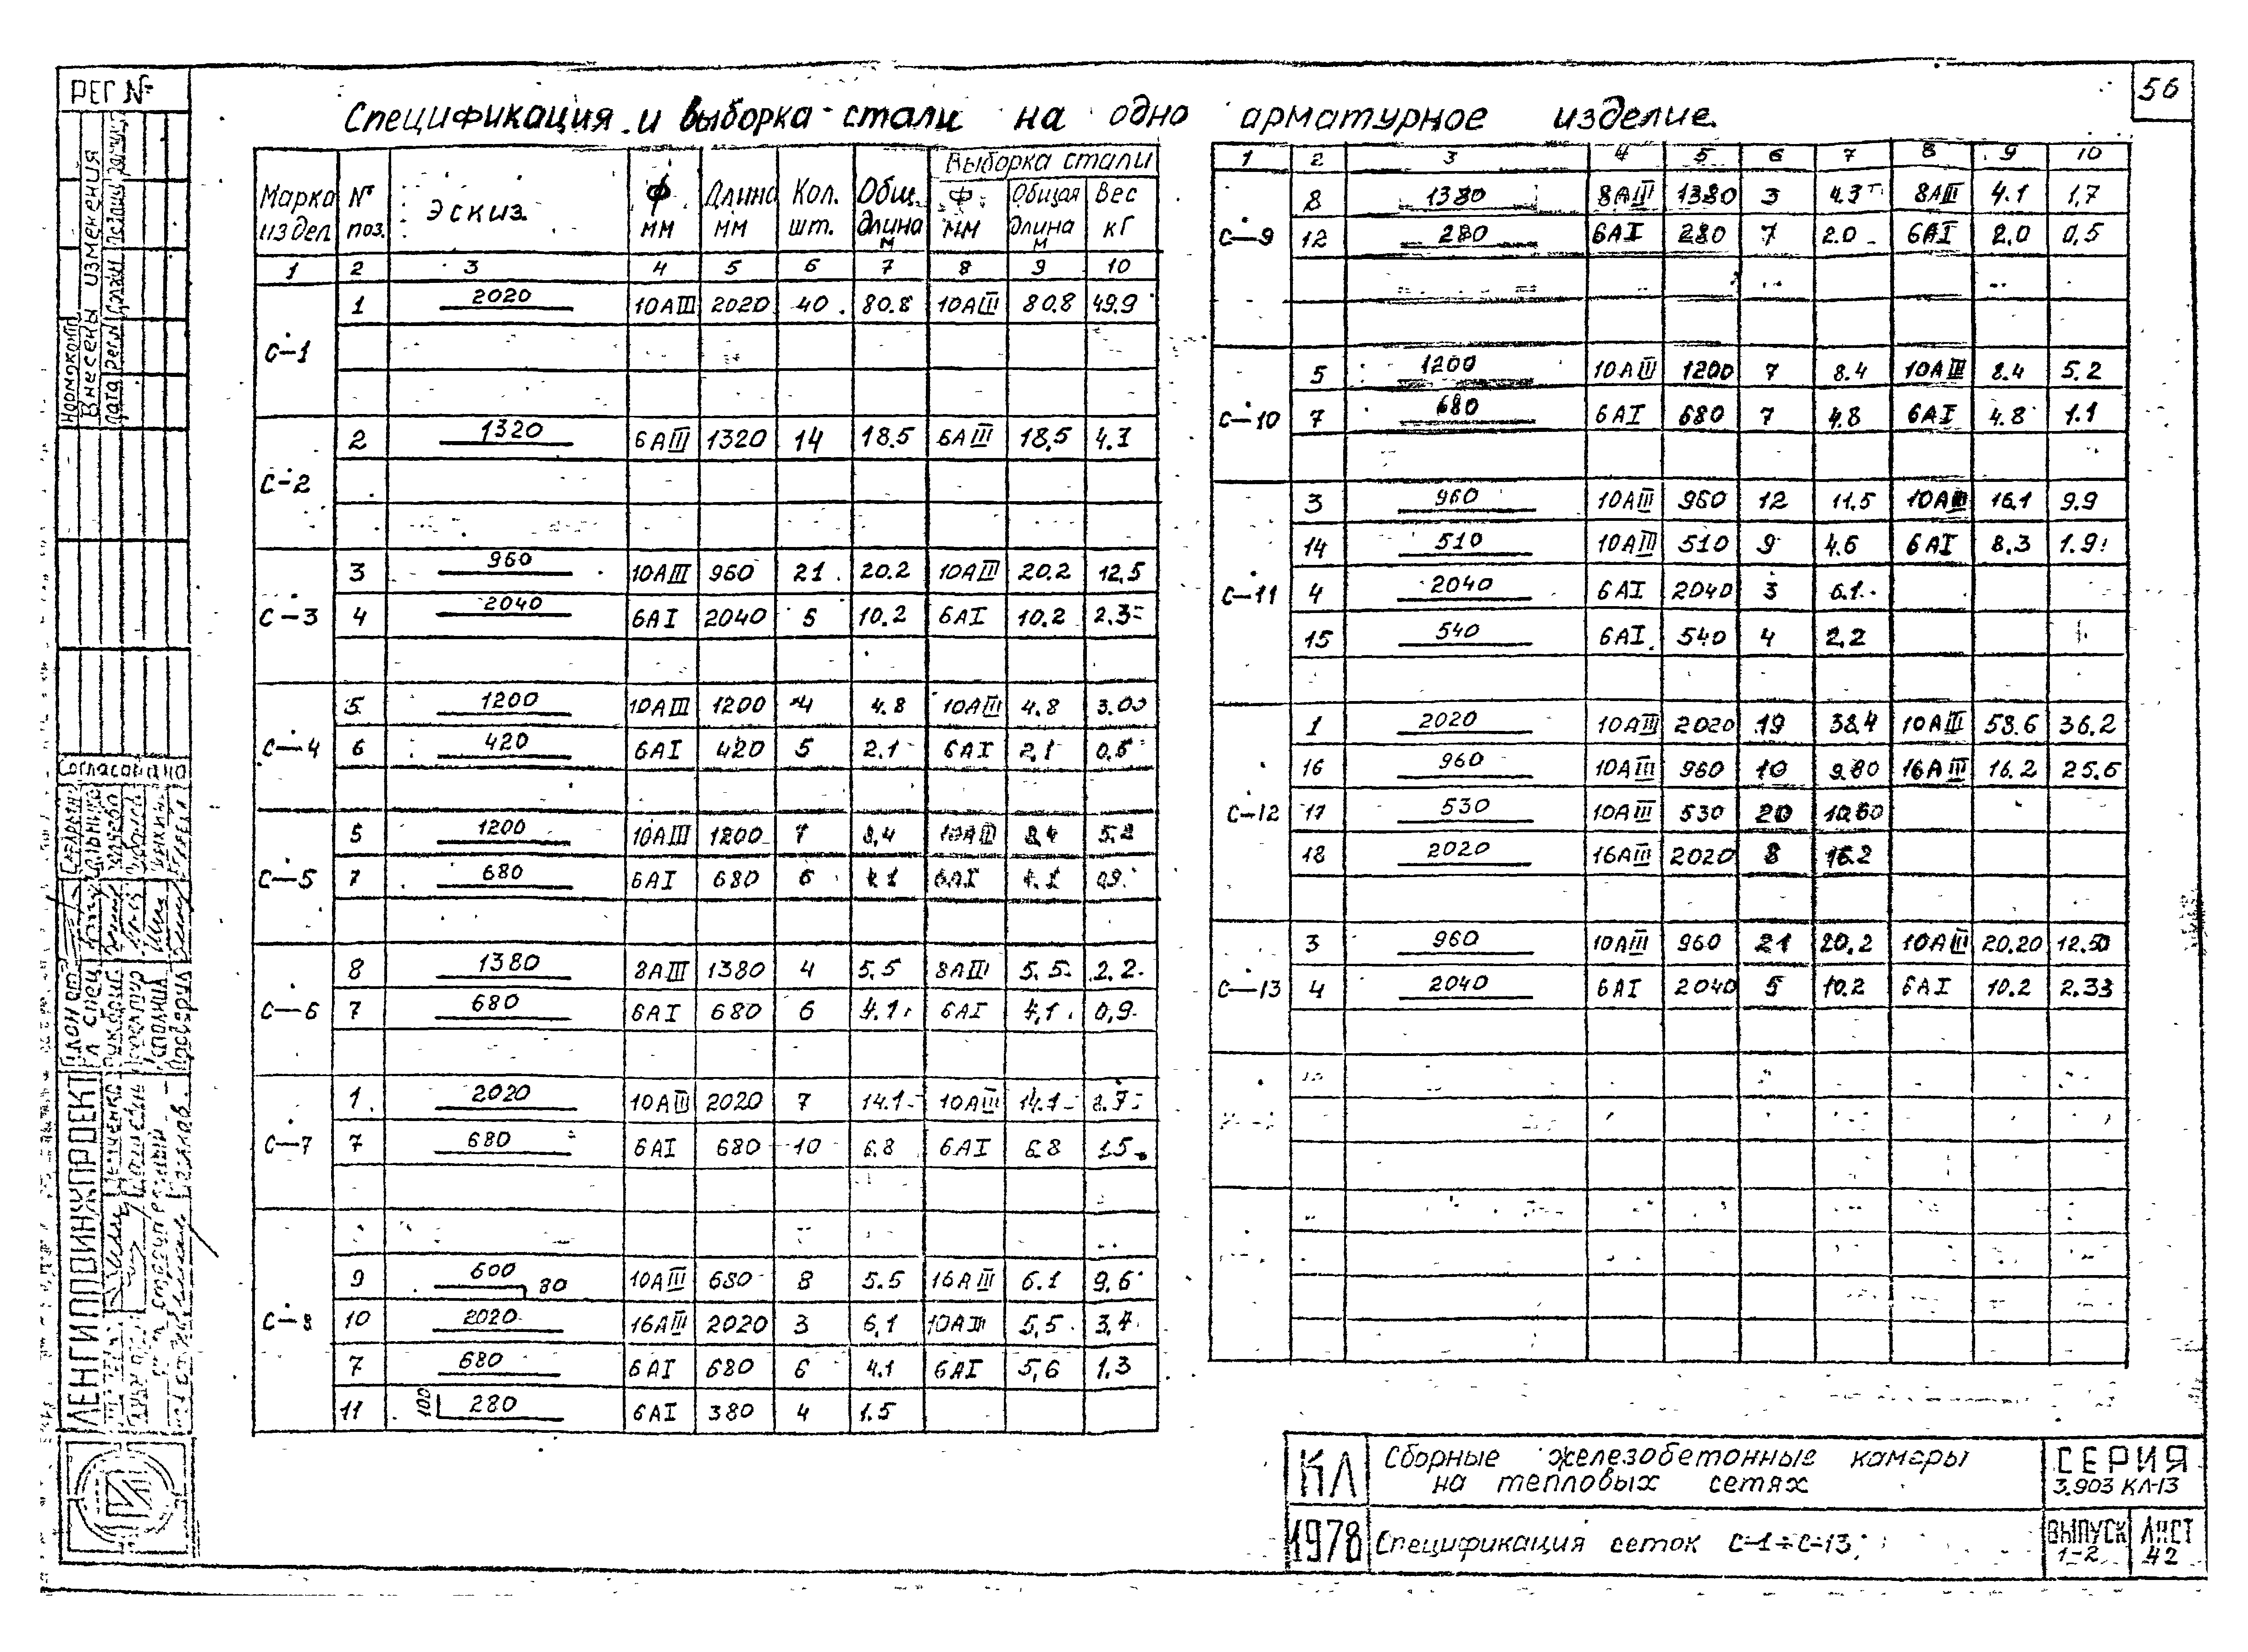 РЕГ №
56
Спецификация и выборка стали на одно арматурное изделие.
Марка издел. | № поз. | Эскиз | Ф мм | Длина мм | Кол. шт. | Общ. длина м | Выборка стали
Ф мм | Общая длина м | Вес кг
1 2 3 4 5 6 7 8 9 10
С-1
1 2020 10АIII 2020 40 80.8 10АIII 80.8 49.9
С-2
2 1320 6АIII 1320 14 18.5 6АIII 18.5 4.1
С-3
3 960 10АIII 960 21 20.2 10АIII 20.2 12.5
4 2040 6АI 2040 5 10.2 6АI 10.2 2.3
С-4
5 1200 10АIII 1200 4 4.8 10АIII 4.8 3.00
6 420 6АI 420 5 2.1 6АI 2.1 0.5
С-5
5 1200 10АIII 1200 7 8.4 10АIII 8.4 5.2
7 680 6АI 680 6 4.1 6АI 4.1 0.9
С-6
8 1380 8АIII 1380 4 5.5 8АIII 5.5 2.2
7 680 6АI 680 6 4.1 6АI 4.1 0,9
С-7
1 2020 10АIII 2020 7 14.1 10АIII 14.1 8.7
7 680 6АI 680 10 6.8 6АI 6.8 1.5
С-8
9 600 80 10АIII 680 8 5.5 16АIII 6.1 9.6
10 2020 16АIII 2020 3 6,1 10АIII 5,5 3,4
7 680 6АI 680 6 4.1 6АI 5,6 1.3
11 100 280 6АI 380 4 1.5
1 2 3 4 5 6 7 8 9 10
С-9
8 1380 8АIII 1380 3 4.3 8АIII 4.1 1,7
12 280 6АI 280 7 2.0 6АI 2.0 0,5
С-10
5 1200 10АIII 1200 7 8.4 10АIII 8.4 5.2
7 680 6АI 680 7 4.8 6АI 4.8 1.1
С-11
3 960 10АIII 960 12 11.5 10АIII 16.1 9.9
14 510 10АIII 510 9 4.6 6АI 8.3 1.9
4 2040 6АI 2040 3 6.1
15 540 6АI 540 4 2,2
С-12
1 2020 10АIII 2020 19 38.4 10АIII 58.6 36.2
16 960 10АIII 960 10 9.60 16АIII 16.2 25.6
17 530 10АIII 530 20 10.60
18 2020 16АIII 2020 8 16.2
С-13
3 960 10АIII 960 21 20.2 10АIII 20.20 12.50
4 2040 6АI 2040 5 10.2 6АI 10.2 2.33
Нормоконт
Внесены изменения
Дата
Согласована
ЛЕНГИПРОИНЖПРОЕКТ
Гл спец
Проверил
КЛ
Сборные железобетонные камеры
на тепловых сетях
СЕРИЯ
3.903 КЛ-13
1978
Спецификация сеток С-1÷С-13
ВЫПУСК
1-2
ЛИСТ
42